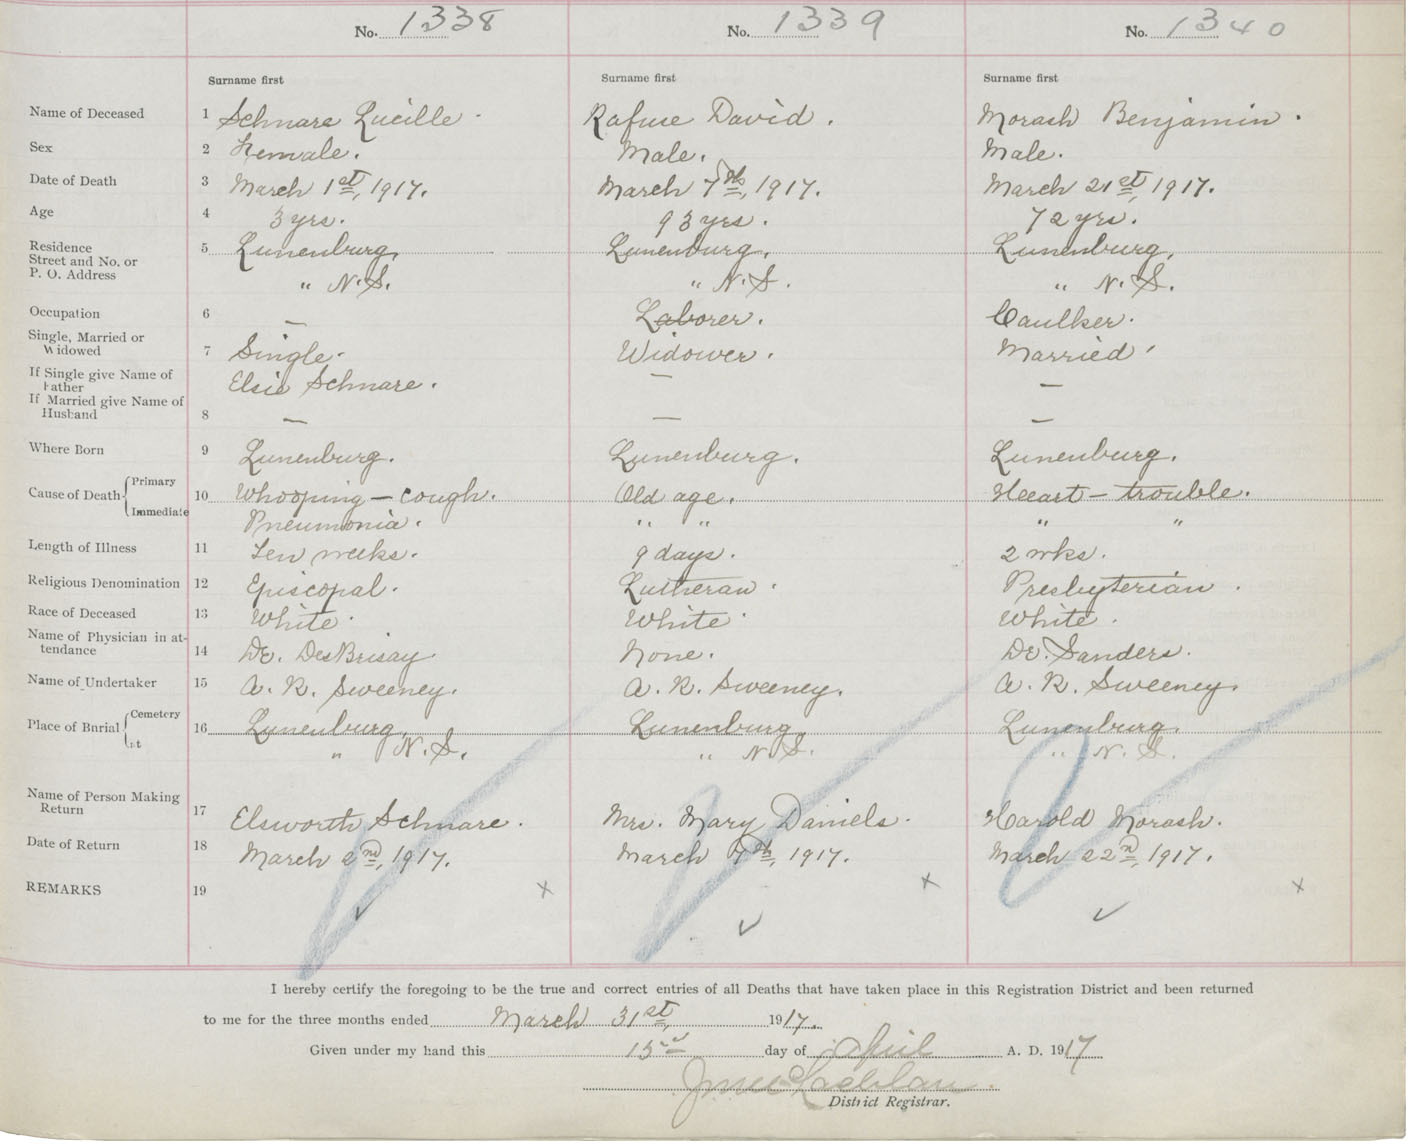 No. 1338 No. 1339 No. 1340
Surname first Surname first Surname first
Name of Deceased 1 Schnare Lucille. Rafuse David. Morash Benjamin.
Sex 2 Female. Male. Male.
Date of Death 3 March 1st, 1917. March 7th, 1917. March 21st, 1917.
Age 4 3 yrs. 93 yrs. 72 yrs.
Residence 5 Lunenburg, Lunenburg, Lunenburg,
Street and No. or
P. O. Address " N.S. " N.S. " N.S.
Occupation 6 — Laborer. Caulker.
Single, Married or
Widowed 7 Single. Widower. Married.
If Single give Name of
Father Elsie Schnare. — —
If Married give Name of
Husband 8 — — —
Where Born 9 Lunenburg. Lunenburg. Lunenburg.
Primary
Cause of Death 10 Whooping-cough. Old age. Heeart-trouble.
Immediate Pneumonia. " " " "
Length of Illness 11 Ten weeks. 9 days. 2 wks.
Religious Denomination 12 Episcopal. Lutheran. Presbyterian.
Race of Deceased 13 White. White. White.
Name of Physician in at-
tendance 14 Dr. DesBrisay. None. Dr. Sanders.
Name of Undertaker 15 A. R. Sweeney. A. R. Sweeney. A. R. Sweeney.
Cemetery
Place of Burial 16 Lunenburg, Lunenburg, Lunenburg,
Lot " N.S. " N.S. " N.S.
Name of Person Making
Return 17 Elsworth Schnare. Mrs. Mary Daniels. Harold Morash.
Date of Return 18 March 2nd, 1917. March 7th, 1917. March 22nd, 1917.
REMARKS 19 x x x
I hereby certify the foregoing to be the true and correct entries of all Deaths that have taken place in this Registration District and been returned
to me for the three months ended March 31st, 1917.
Given under my hand this day of April A. D. 1917
District Registrar.